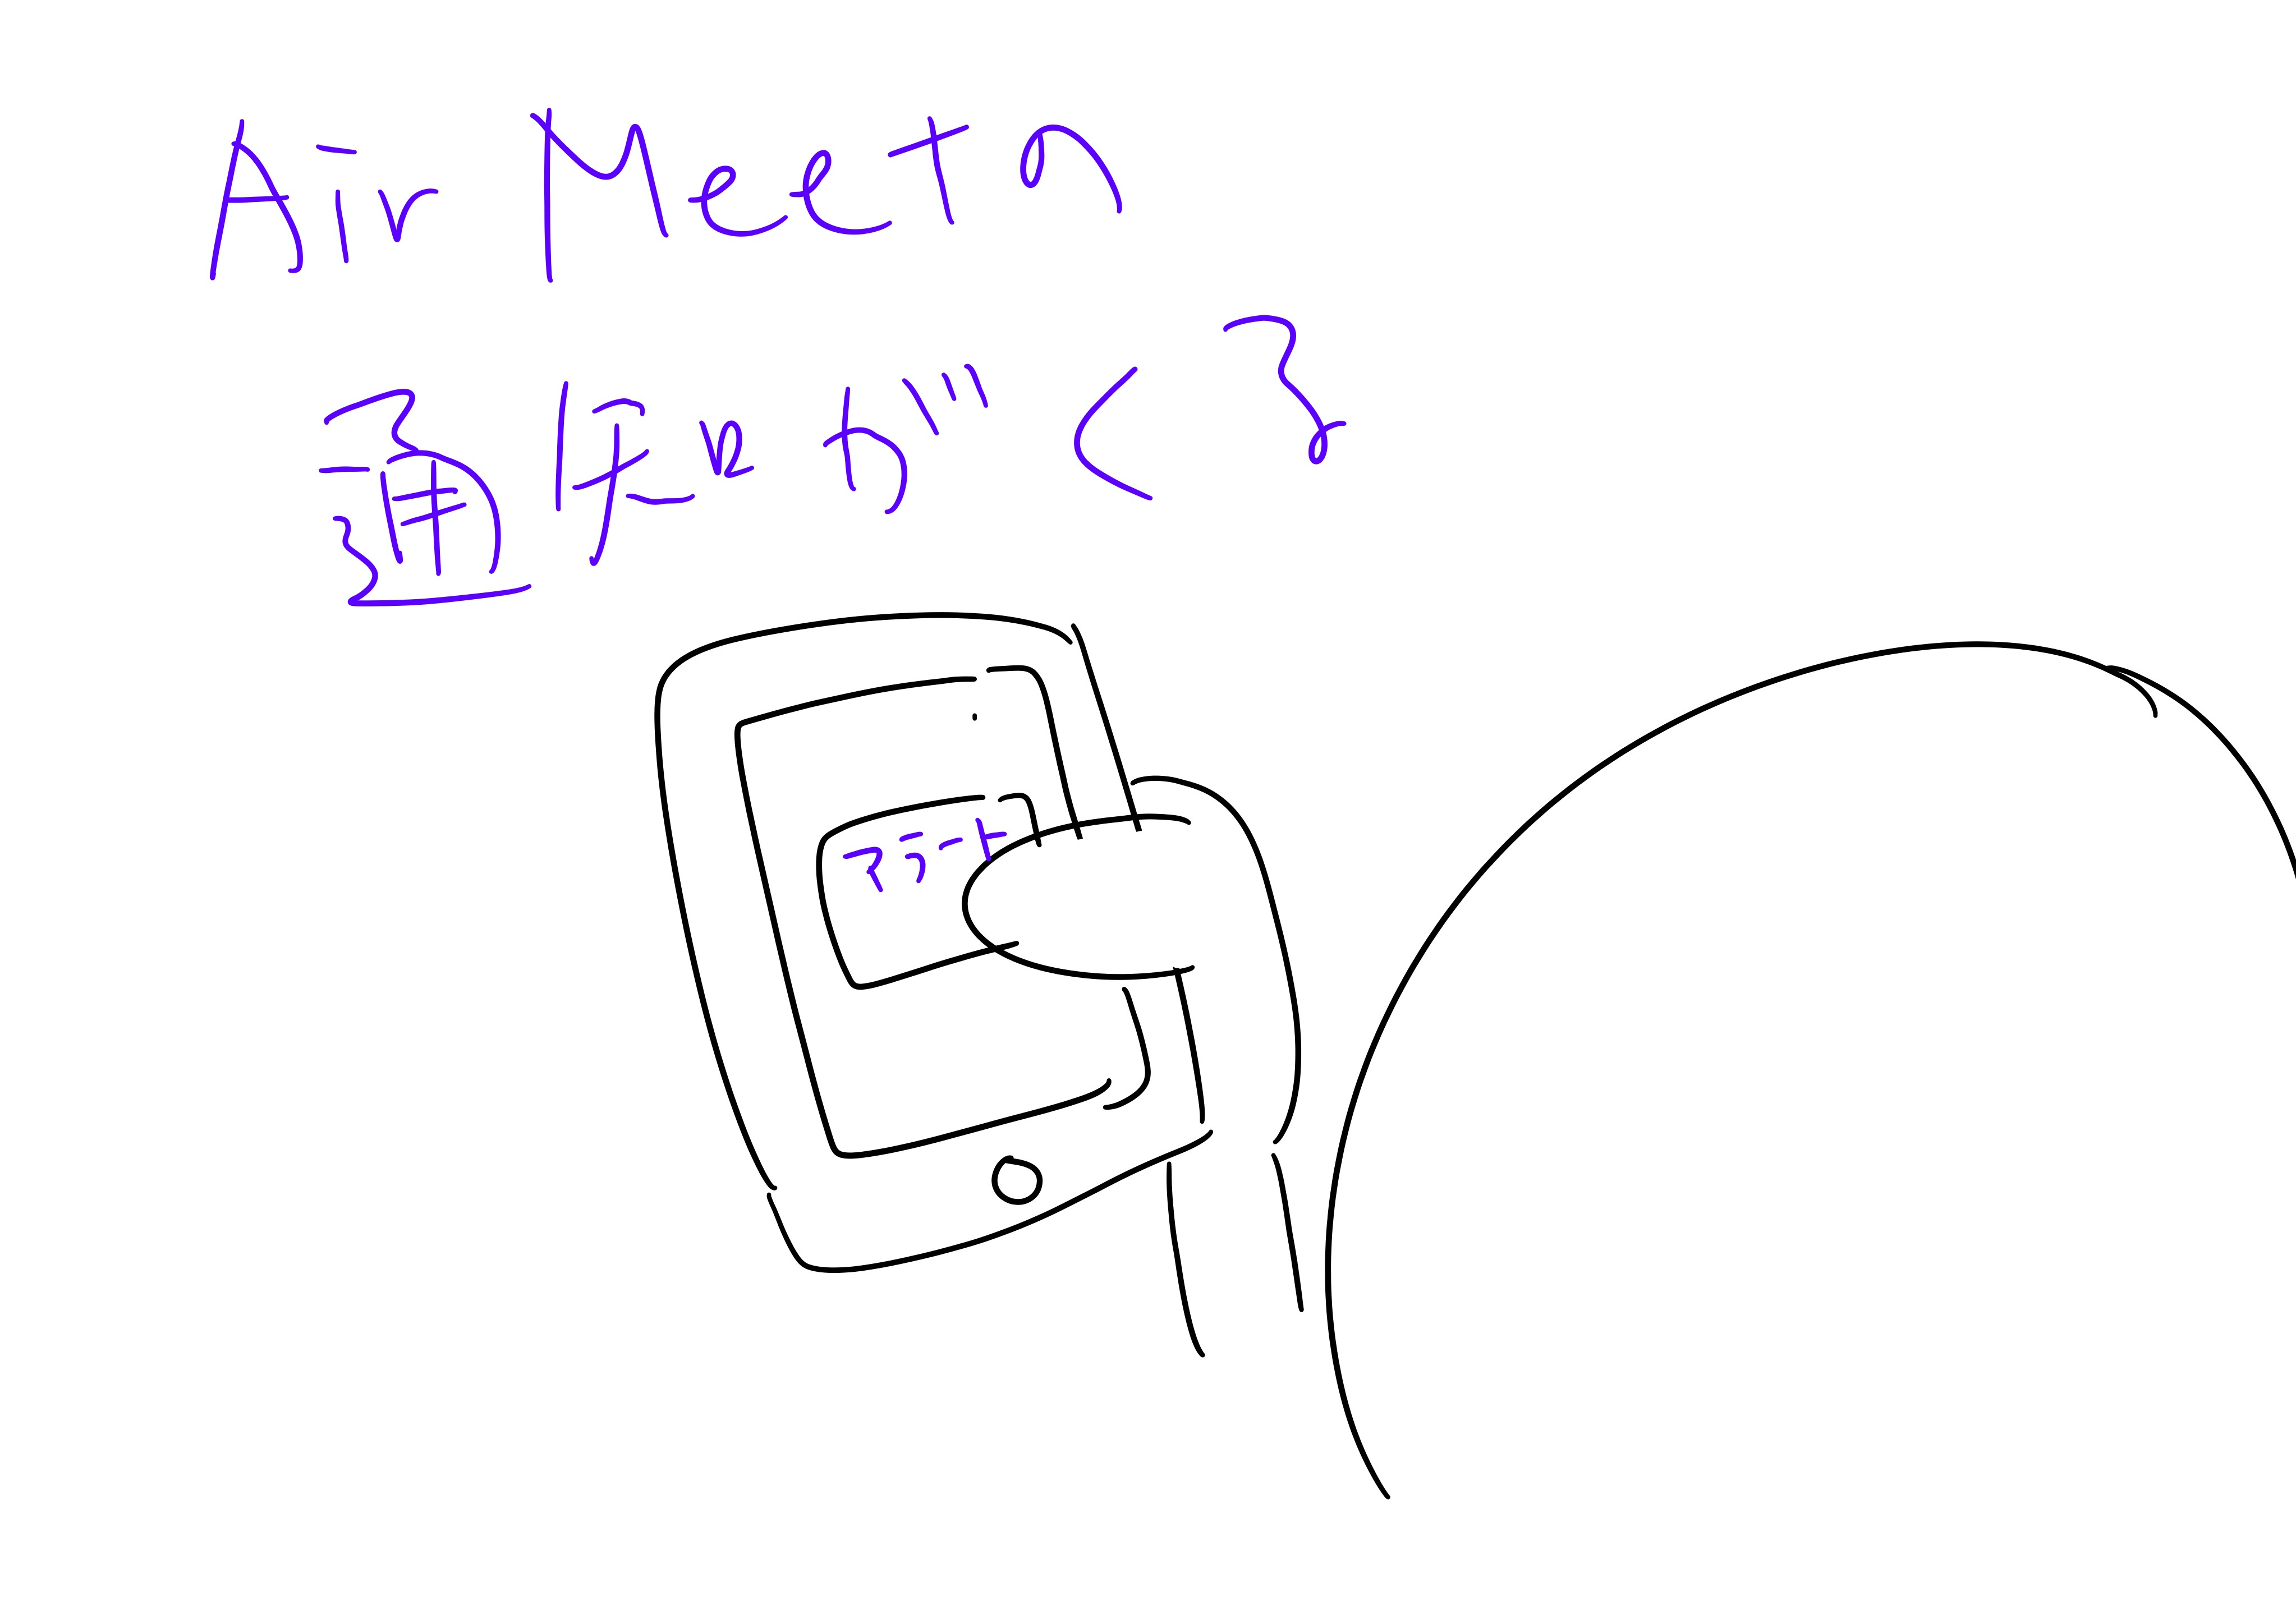 Air Meetの
通知がくる
アラート